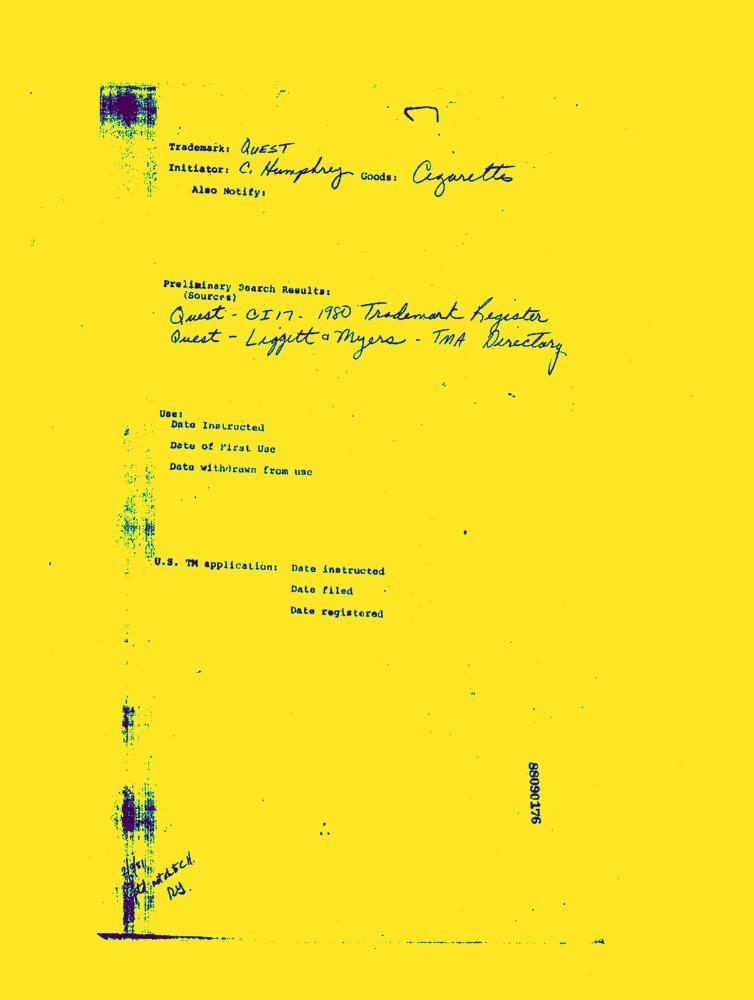 Trademark: QUEST
Initiator: C. Humphrey Goods: Cigarettes
Also Notify:
Preliminary Search Results:
(Sources)
Quest - CI 17 - 1980 Trademark Register
Quest - Liggett & Myers - TMA Directory
Use:
Date Instructed
Date of First Use
Date withdrawn from use
U.S. TM application: Date instructed
Date filed
Date registered
88090176